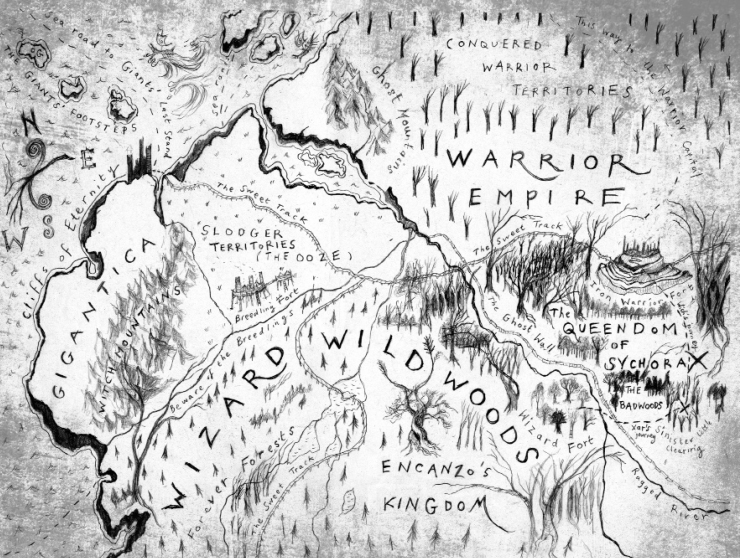 Sea road to Giants' Last Stand
THE GIANTS' FOOTSTEPS
N
E
S
W
Cliffs of Eternity
GIGANTICA
WITCH MOUNTAINS
The Sweet Track
SLODGER
TERRITORIES
(THE OOZE)
Breedling Fort
Beware of the Breedlings
Ghost Mountains
CONQUERED
WARRIOR
TERRITORIES
This way to the Warrior Capital
WARRIOR
EMPIRE
The Sweet Track
Iron Warrior Fort
The Ghost Wall
The
QUEENDOM
OF
SYCHORAX
THE
BADWOODS
X
Xar's
journey
Sinister
Clearing
WIZARD WILDWOODS
Wizard Fort
Forever Forests
The Sweet Track
ENCANZO'S
KINGDOM
Ragged River